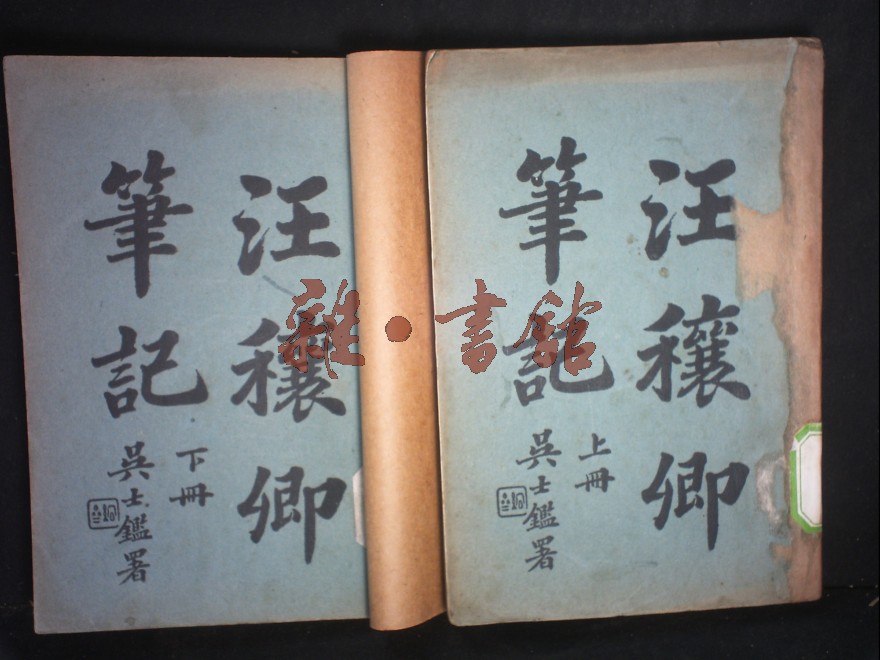 汪穰卿
筆記
上冊
吳士鑑署
汪穰卿
筆記
下冊
吳士鑑署
雜·書館